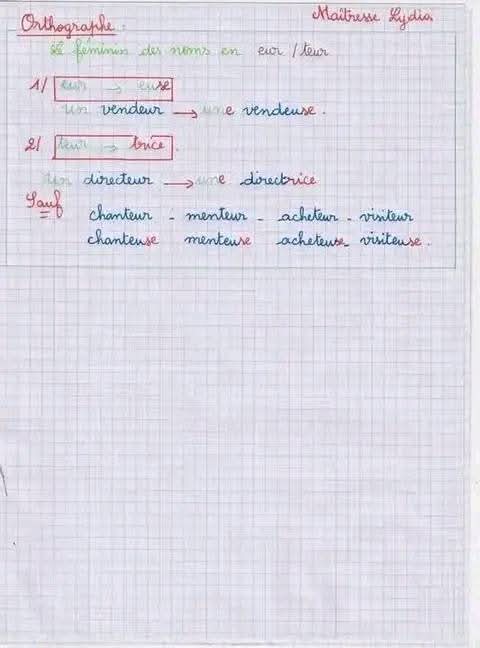 Maîtresse Lydia
Orthographe :
le féminin des noms en eur / teur
1/ eur → euse
un vendeur → une vendeuse.
2/ teur → trice.
un directeur → une directrice
Sauf
chanteur - menteur - acheteur - visiteur
chanteuse menteuse acheteuse visiteuse.